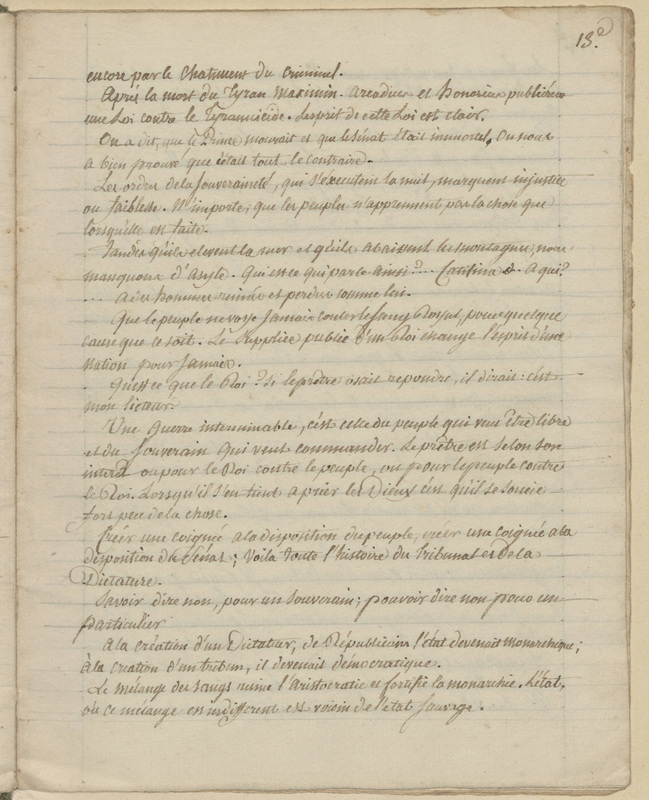 13.e
encore par le Chatiment du Criminel.
Après la mort du Tyran Maximin. Arcadius et Honorius publièrent
une Loi contre le Tyrannicide. L'esprit de cette Loi est clair.
On a dit, que le Prince mourait et que le Sénat était immortel. On nous
a bien prouvé que c'était tout le contraire.
Les ordres de la Souveraineté, qui s'exécutent la nuit, marquent injustice
ou faiblesse. N'importe; que les peuples n'apprennent pas la chose que
lorsqu'elle est faite.
Tandis qu'ils elevent la mer et qu'ils abaissent les montagnes, nous
manquons d'asyle. Qui est ce qui parle ainsi?... Catilina. A qui?
... A des hommes ruinés et perdus comme lui.
Que le peuple ne voye Jamais couler le sang Royal, pour quelque
cause que ce soit. Le Supplice public d'un Roi change l'esprit d'une
Nation pour Jamais.
Qu'est ce que le Roi? Si le prêtre osait repondre, il dirait: c'est
mon licteur.
Une Guerre interminable, c'est celle du peuple qui veut être libre
et du Souverain qui veut commander. Le prêtre est selon son
interêt ou pour le Roi contre le peuple, ou pour le peuple contre
le Roi. Lorsqu'il s'en tient a prier les Dieux c'est qu'il se soucie
fort peu de la chose.
Créer une coignée a la disposition du peuple, créer une coignée a la
disposition du Sénat; voila toute l'histoire du Tribunat et de la
Dictature.
Savoir dire non, pour un Souverain; pouvoir dire non pour un
particulier
A la création d'un Dictateur, de Républicain l'état devenait Monarchique;
à la creation d'un tribun, il devenait démocratique.
Le mélange des sangs ruine l'Aristocratie et fortifie la monarchie. L'état,
où ce mélange est indifferent est voisin de l'état sauvage.